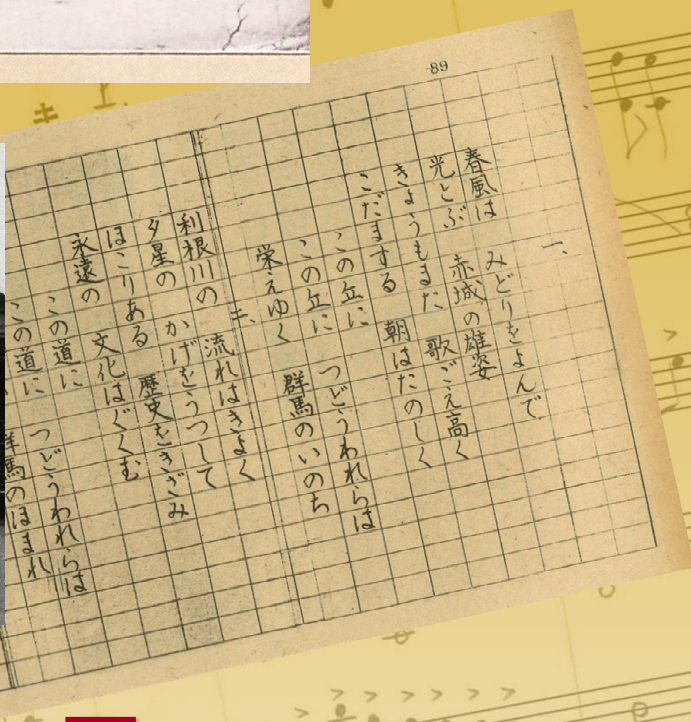 89
一、
春風は　みどりをよんで
光とぶ　赤城の雄姿
きょうもまた　歌ごえ高く
こだまする　朝はたのしく
この丘に　つどうわれらは
この丘に　群馬のいのち
栄えゆく
二、
利根川の　流れはきよく
夕星の　かげをうつして
ほこりある　歴史をきざみ
永遠の　文化はぐくむ
この道に　つどうわれらは
この道に　群馬のほまれ